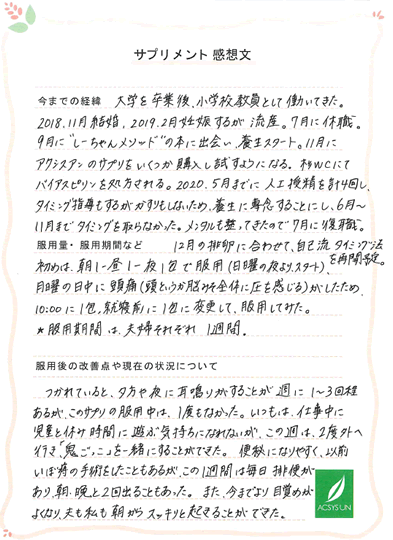 サプリメント 感想文
今までの経緯 大学を卒業後、小学校教員として働いてきた。
2018.11月結婚。2019.2月妊娠するが流産。7月に休職。
9月に"しーちゃんメソッド"の本に出会い、養生スタート。11月に
アクシスアンのサプリをいくつか購入し試すようになる。杉WCにて
バイアスピリンを処方される。2020.5月までに人工授精を計4回し、
タイミング指導もするがかすりもしないため、養生に専念することにし、6月〜
11月までタイミングを取らなかった。メンタルも整ってきたので7月に復職。
服用量・服用期間など 12月の排卵に合わせて、自己流タイミング法
を再開予定。
初めは、朝1-昼1-夜1包で服用(日曜の夜よりスタート)、
月曜の日中に頭痛(頭というか脳みそ全体に圧を感じる)がしたため、
10:00に1包、就寝前に1包に変更して、服用してみた。
*服用期間は、夫婦それぞれ1週間。
服用後の改善点や現在の状況について
つかれていると、夕方や夜に耳鳴りがすることが週に1〜3回程
あるが、このサプリの服用中は、1度もなかった。いつもは、仕事中に
児童と休み時間に遊ぶ気持ちになれないが、この週は、2度外へ
行き、「鬼ごっこ」を一緒にすることができた。便秘になりやすく、以前
いぼ痔の手術をしたこともあるが、この1週間は毎日排便が
あり、朝・晩と2回出ることもあった。また、今までより目覚めが
よくなり、夫も私も朝からスッキリと起きることができた。
ACSYS UN